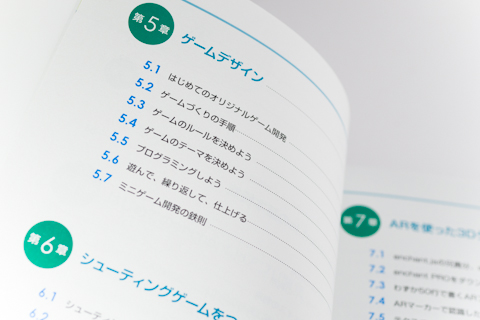 第5章 ゲームデザイン
5.1 はじめてのオリジナルゲーム開発
5.2 ゲームづくりの手順
5.3 ゲームのルールを決めよう
5.4 ゲームのテーマを決めよう
5.5 プログラミングしよう
5.6 遊んで、繰り返して、仕上げる
5.7 ミニゲーム開発の鉄則
第6章 シューティングゲームをつ
6.1 シューティ
6.2
第7章 ARを使った3D
7.1 enchant.jsの
7.2 enchant PROをダウン
7.3 わずか50行で書くAR
7.4 ARマーカーで認識した
7.5